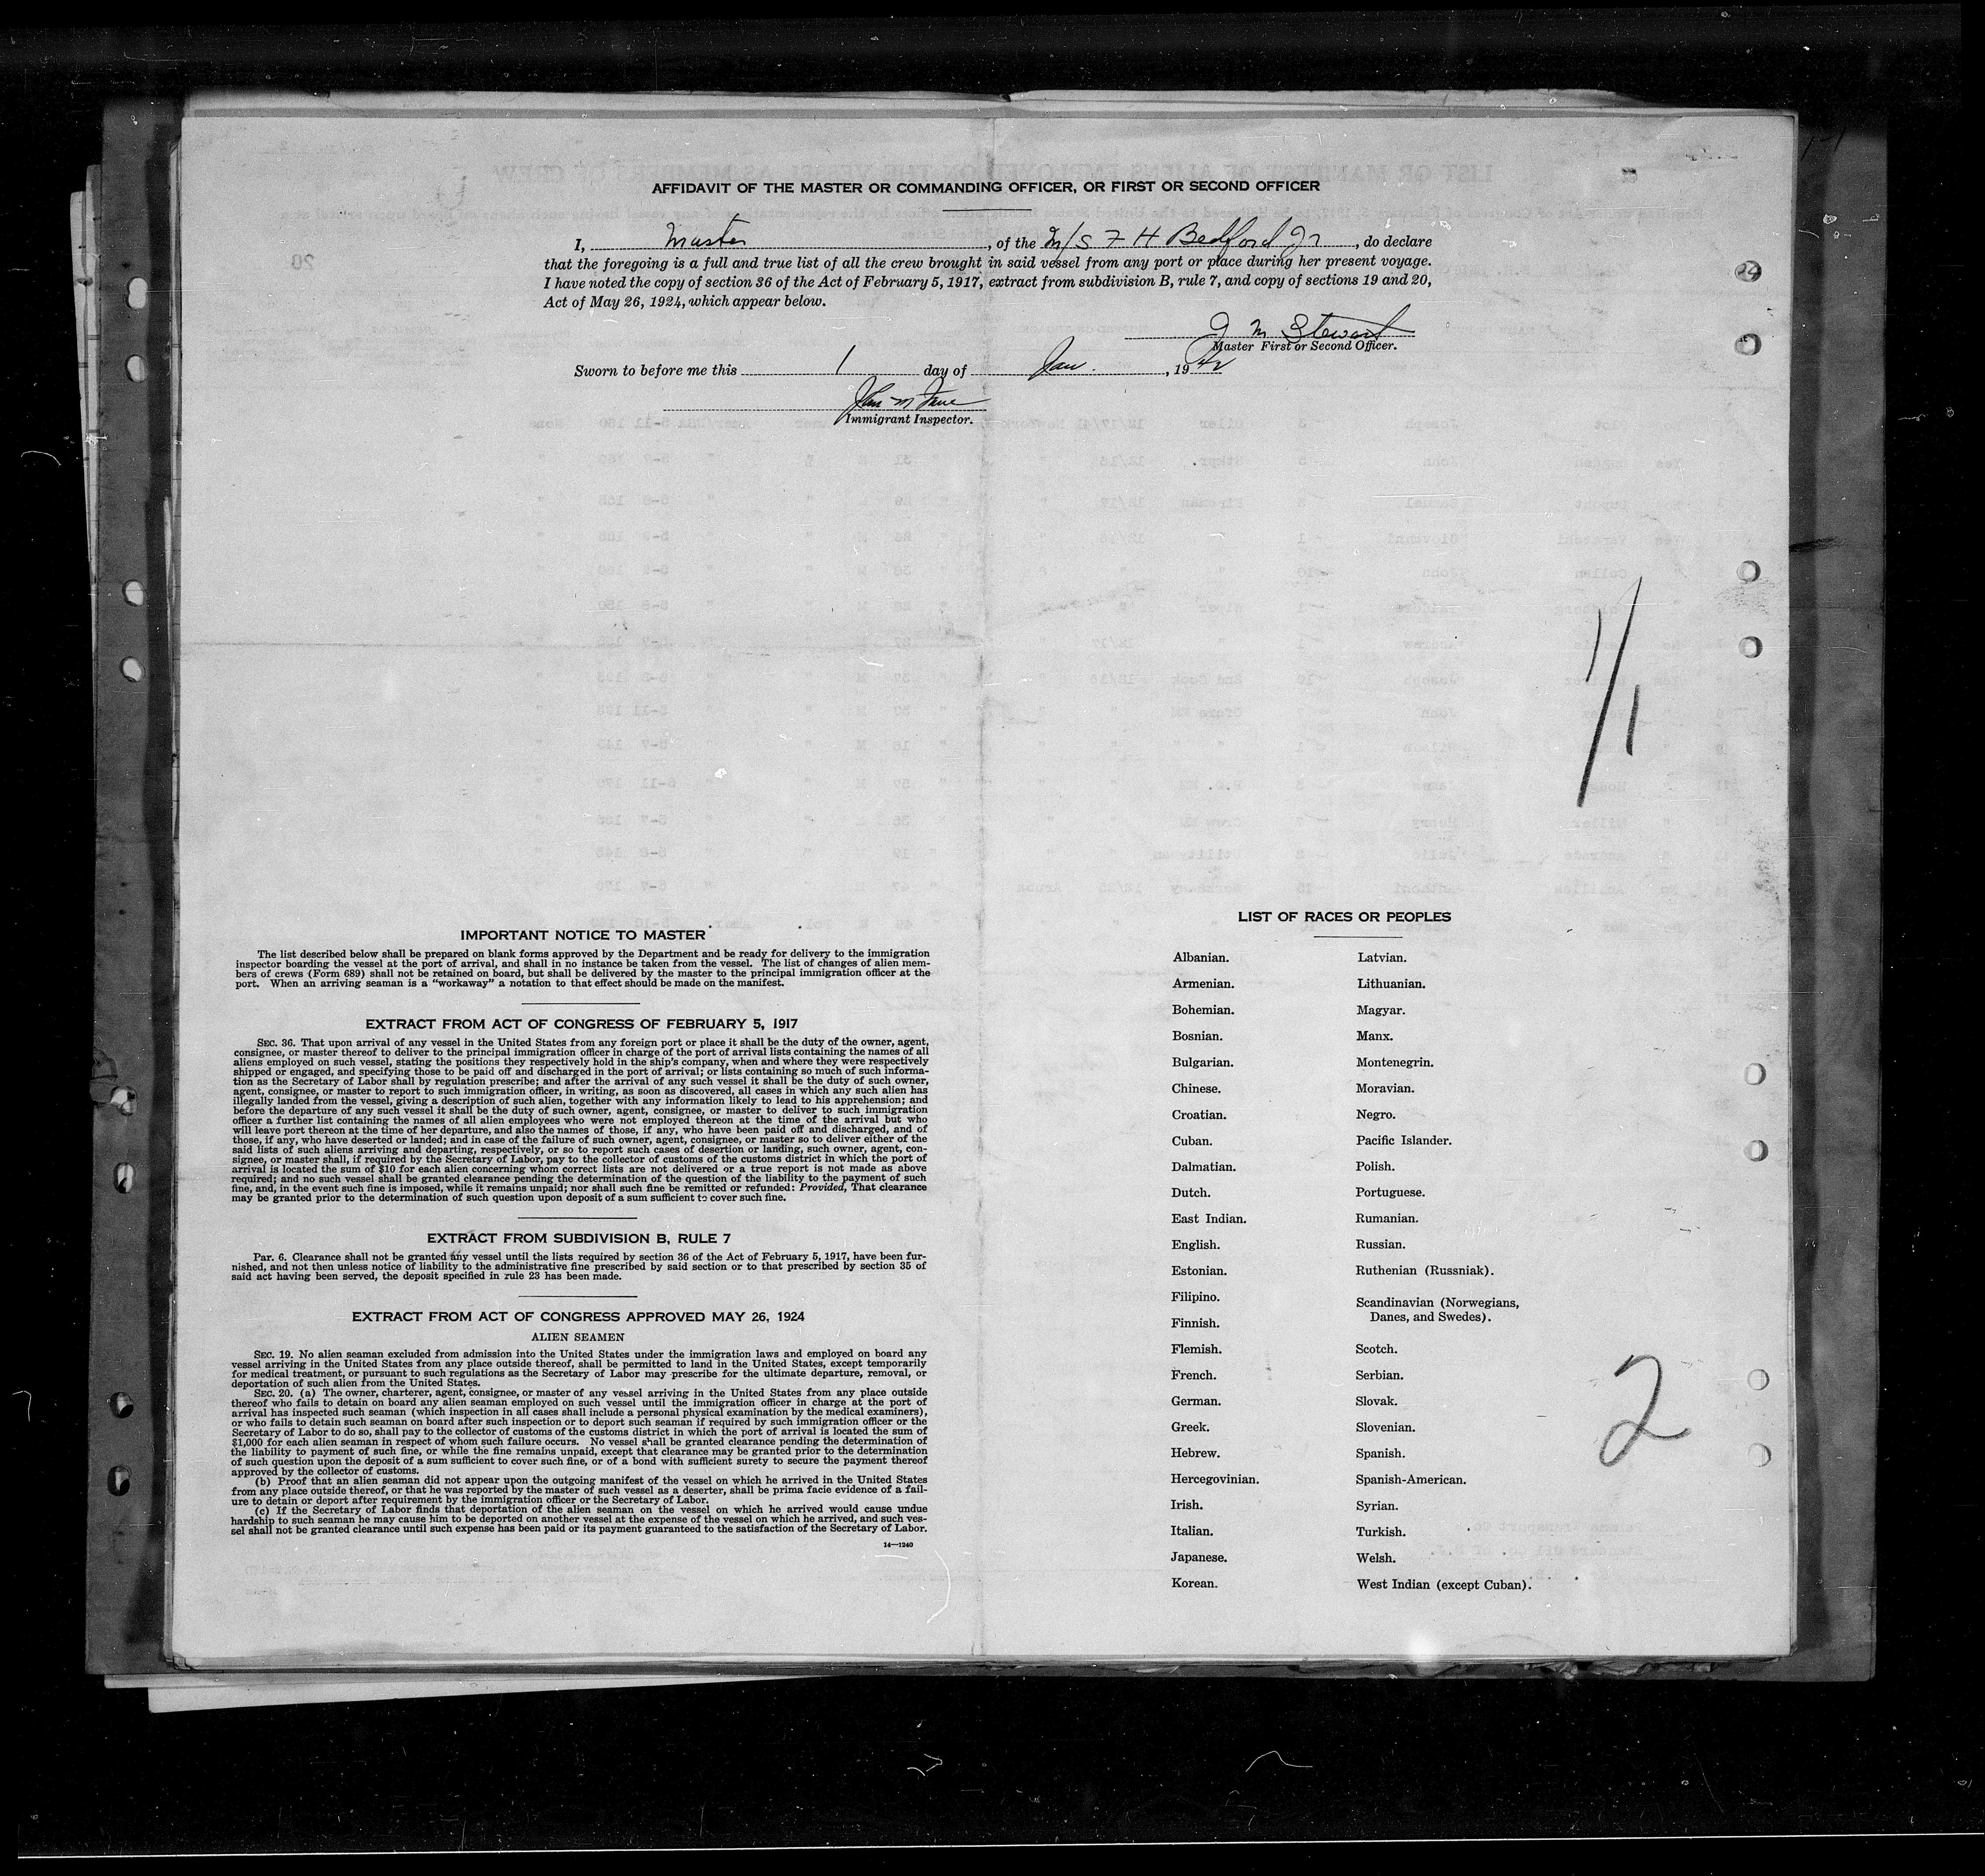 AFFIDAVIT OF THE MASTER OR COMMANDING OFFICER, OR FIRST OR SECOND OFFICER
I, Master, of the M/S F H Bedford Jr, do declare
that the foregoing is a full and true list of all the crew brought in said vessel from any port or place during her present voyage.
I have noted the copy of section 36 of the Act of February 5, 1917, extract from subdivision B, rule 7, and copy of sections 19 and 20,
Act of May 26, 1924, which appear below.
J M Stewart
Master First or Second Officer.
Sworn to before me this 1 day of Jan., 1942
Immigrant Inspector.
1/1
IMPORTANT NOTICE TO MASTER
The list described below shall be prepared on blank forms approved by the Department and be ready for delivery to the immigration
inspector boarding the vessel at the port of arrival, and shall in no instance be taken from the vessel. The list of changes of alien mem-
bers of crews (Form 689) shall not be retained on board, but shall be delivered by the master to the principal immigration officer at the
port. When an arriving seaman is a "workaway" a notation to that effect should be made on the manifest.
EXTRACT FROM ACT OF CONGRESS OF FEBRUARY 5, 1917
SEC. 36. That upon arrival of any vessel in the United States from any foreign port or place it shall be the duty of the owner, agent,
consignee, or master thereof to deliver to the principal immigration officer in charge of the port of arrival lists containing the names of all
aliens employed on such vessel, stating the positions they respectively hold in the ship's company, when and where they were respectively
shipped or engaged, and specifying those to be paid off and discharged in the port of arrival; or lists containing so much of such informa-
tion as the Secretary of Labor shall by regulation prescribe; and after the arrival of any such vessel it shall be the duty of such owner,
agent, consignee, or master to report to such immigration officer, in writing, as soon as discovered, all cases in which any such alien has
illegally landed from the vessel, giving a description of such alien, together with any information likely to lead to his apprehension; and
before the departure of any such vessel it shall be the duty of such owner, agent, consignee, or master to deliver to such immigration
officer a further list containing the names of all alien employees who were not employed thereon at the time of the arrival but who
will leave port thereon at the time of her departure, and also the names of those, if any, who have been paid off and discharged, and of
those, if any, who have deserted or landed; and in case of the failure of such owner, agent, consignee, or master so to deliver either of the
said lists of such aliens arriving and departing, respectively, or so to report such cases of desertion or landing, such owner, agent, con-
signee, or master shall, if required by the Secretary of Labor, pay to the collector of customs of the customs district in which the port of
arrival is located the sum of $10 for each alien concerning whom correct lists are not delivered or a true report is not made as above
required; and no such vessel shall be granted clearance pending the determination of the question of the liability to the payment of such
fine, and, in the event such fine is imposed, while it remains unpaid; nor shall such fine be remitted or refunded: Provided, That clearance
may be granted prior to the determination of such question upon deposit of a sum sufficient to cover such fine.
EXTRACT FROM SUBDIVISION B, RULE 7
Par. 6. Clearance shall not be granted any vessel until the lists required by section 36 of the Act of February 5, 1917, have been fur-
nished, and not then unless notice of liability to the administrative fine prescribed by said section or to that prescribed by section 35 of
said act having been served, the deposit specified in rule 23 has been made.
EXTRACT FROM ACT OF CONGRESS APPROVED MAY 26, 1924
ALIEN SEAMEN
SEC. 19. No alien seaman excluded from admission into the United States under the immigration laws and employed on board any
vessel arriving in the United States from any place outside thereof, shall be permitted to land in the United States, except temporarily
for medical treatment, or pursuant to such regulations as the Secretary of Labor may prescribe for the ultimate departure, removal, or
deportation of such alien from the United States.
SEC. 20. (a) The owner, charterer, agent, consignee, or master of any vessel arriving in the United States from any place outside
thereof who fails to detain on board any alien seaman employed on such vessel until the immigration officer in charge at the port of
arrival has inspected such seaman (which inspection in all cases shall include a personal physical examination by the medical examiners),
or who fails to detain such seaman on board after such inspection or to deport such seaman if required by such immigration officer or the
Secretary of Labor to do so, shall pay to the collector of customs of the customs district in which the port of arrival is located the sum of
$1,000 for each alien seaman in respect of whom such failure occurs. No vessel shall be granted clearance pending the determination of
the liability to payment of such fine, or while the fine remains unpaid, except that clearance may be granted prior to the determination
of such question upon the deposit of a sum sufficient to cover such fine, or of a bond with sufficient surety to secure the payment thereof
approved by the collector of customs.
(b) Proof that an alien seaman did not appear upon the outgoing manifest of the vessel on which he arrived in the United States
from any place outside thereof, or that he was reported by the master of such vessel as a deserter, shall be prima facie evidence of a fail-
ure to detain or deport after requirement by the immigration officer or the Secretary of Labor.
(c) If the Secretary of Labor finds that deportation of the alien seaman on the vessel on which he arrived would cause undue
hardship to such seaman he may cause him to be deported on another vessel at the expense of the vessel on which he arrived, and such ves-
sel shall not be granted clearance until such expense has been paid or its payment guaranteed to the satisfaction of the Secretary of Labor.
14—1240
LIST OF RACES OR PEOPLES
Albanian.
Armenian.
Bohemian.
Bosnian.
Bulgarian.
Chinese.
Croatian.
Cuban.
Dalmatian.
Dutch.
East Indian.
English.
Estonian.
Filipino.
Finnish.
Flemish.
French.
German.
Greek.
Hebrew.
Hercegovinian.
Irish.
Italian.
Japanese.
Korean.
Latvian.
Lithuanian.
Magyar.
Manx.
Montenegrin.
Moravian.
Negro.
Pacific Islander.
Polish.
Portuguese.
Rumanian.
Russian.
Ruthenian (Russniak).
Scandinavian (Norwegians,
Danes, and Swedes).
Scotch.
Serbian.
Slovak.
Slovenian.
Spanish.
Spanish-American.
Syrian.
Turkish.
Welsh.
West Indian (except Cuban).
2